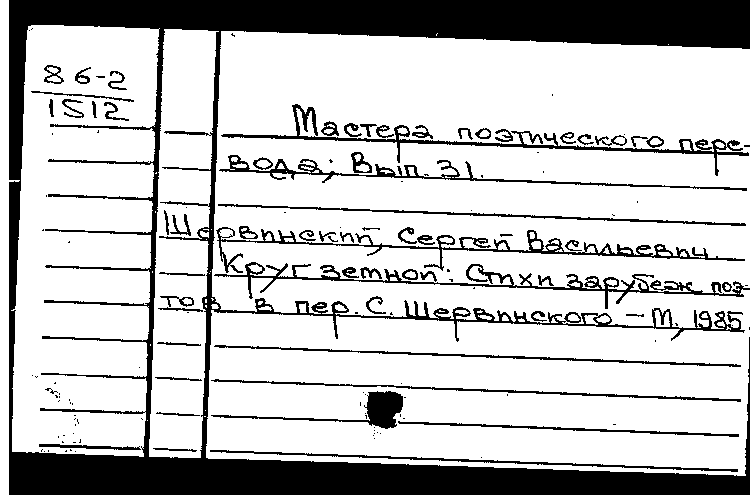 86-2
1512
Мастера поэтического пере-
вода; Вып. 31.
Шервинский, Сергей Васильевич.
Круг земной: Стихи зарубеж. поэ-
тов в пер. С. Шервинского. – М., 1985.